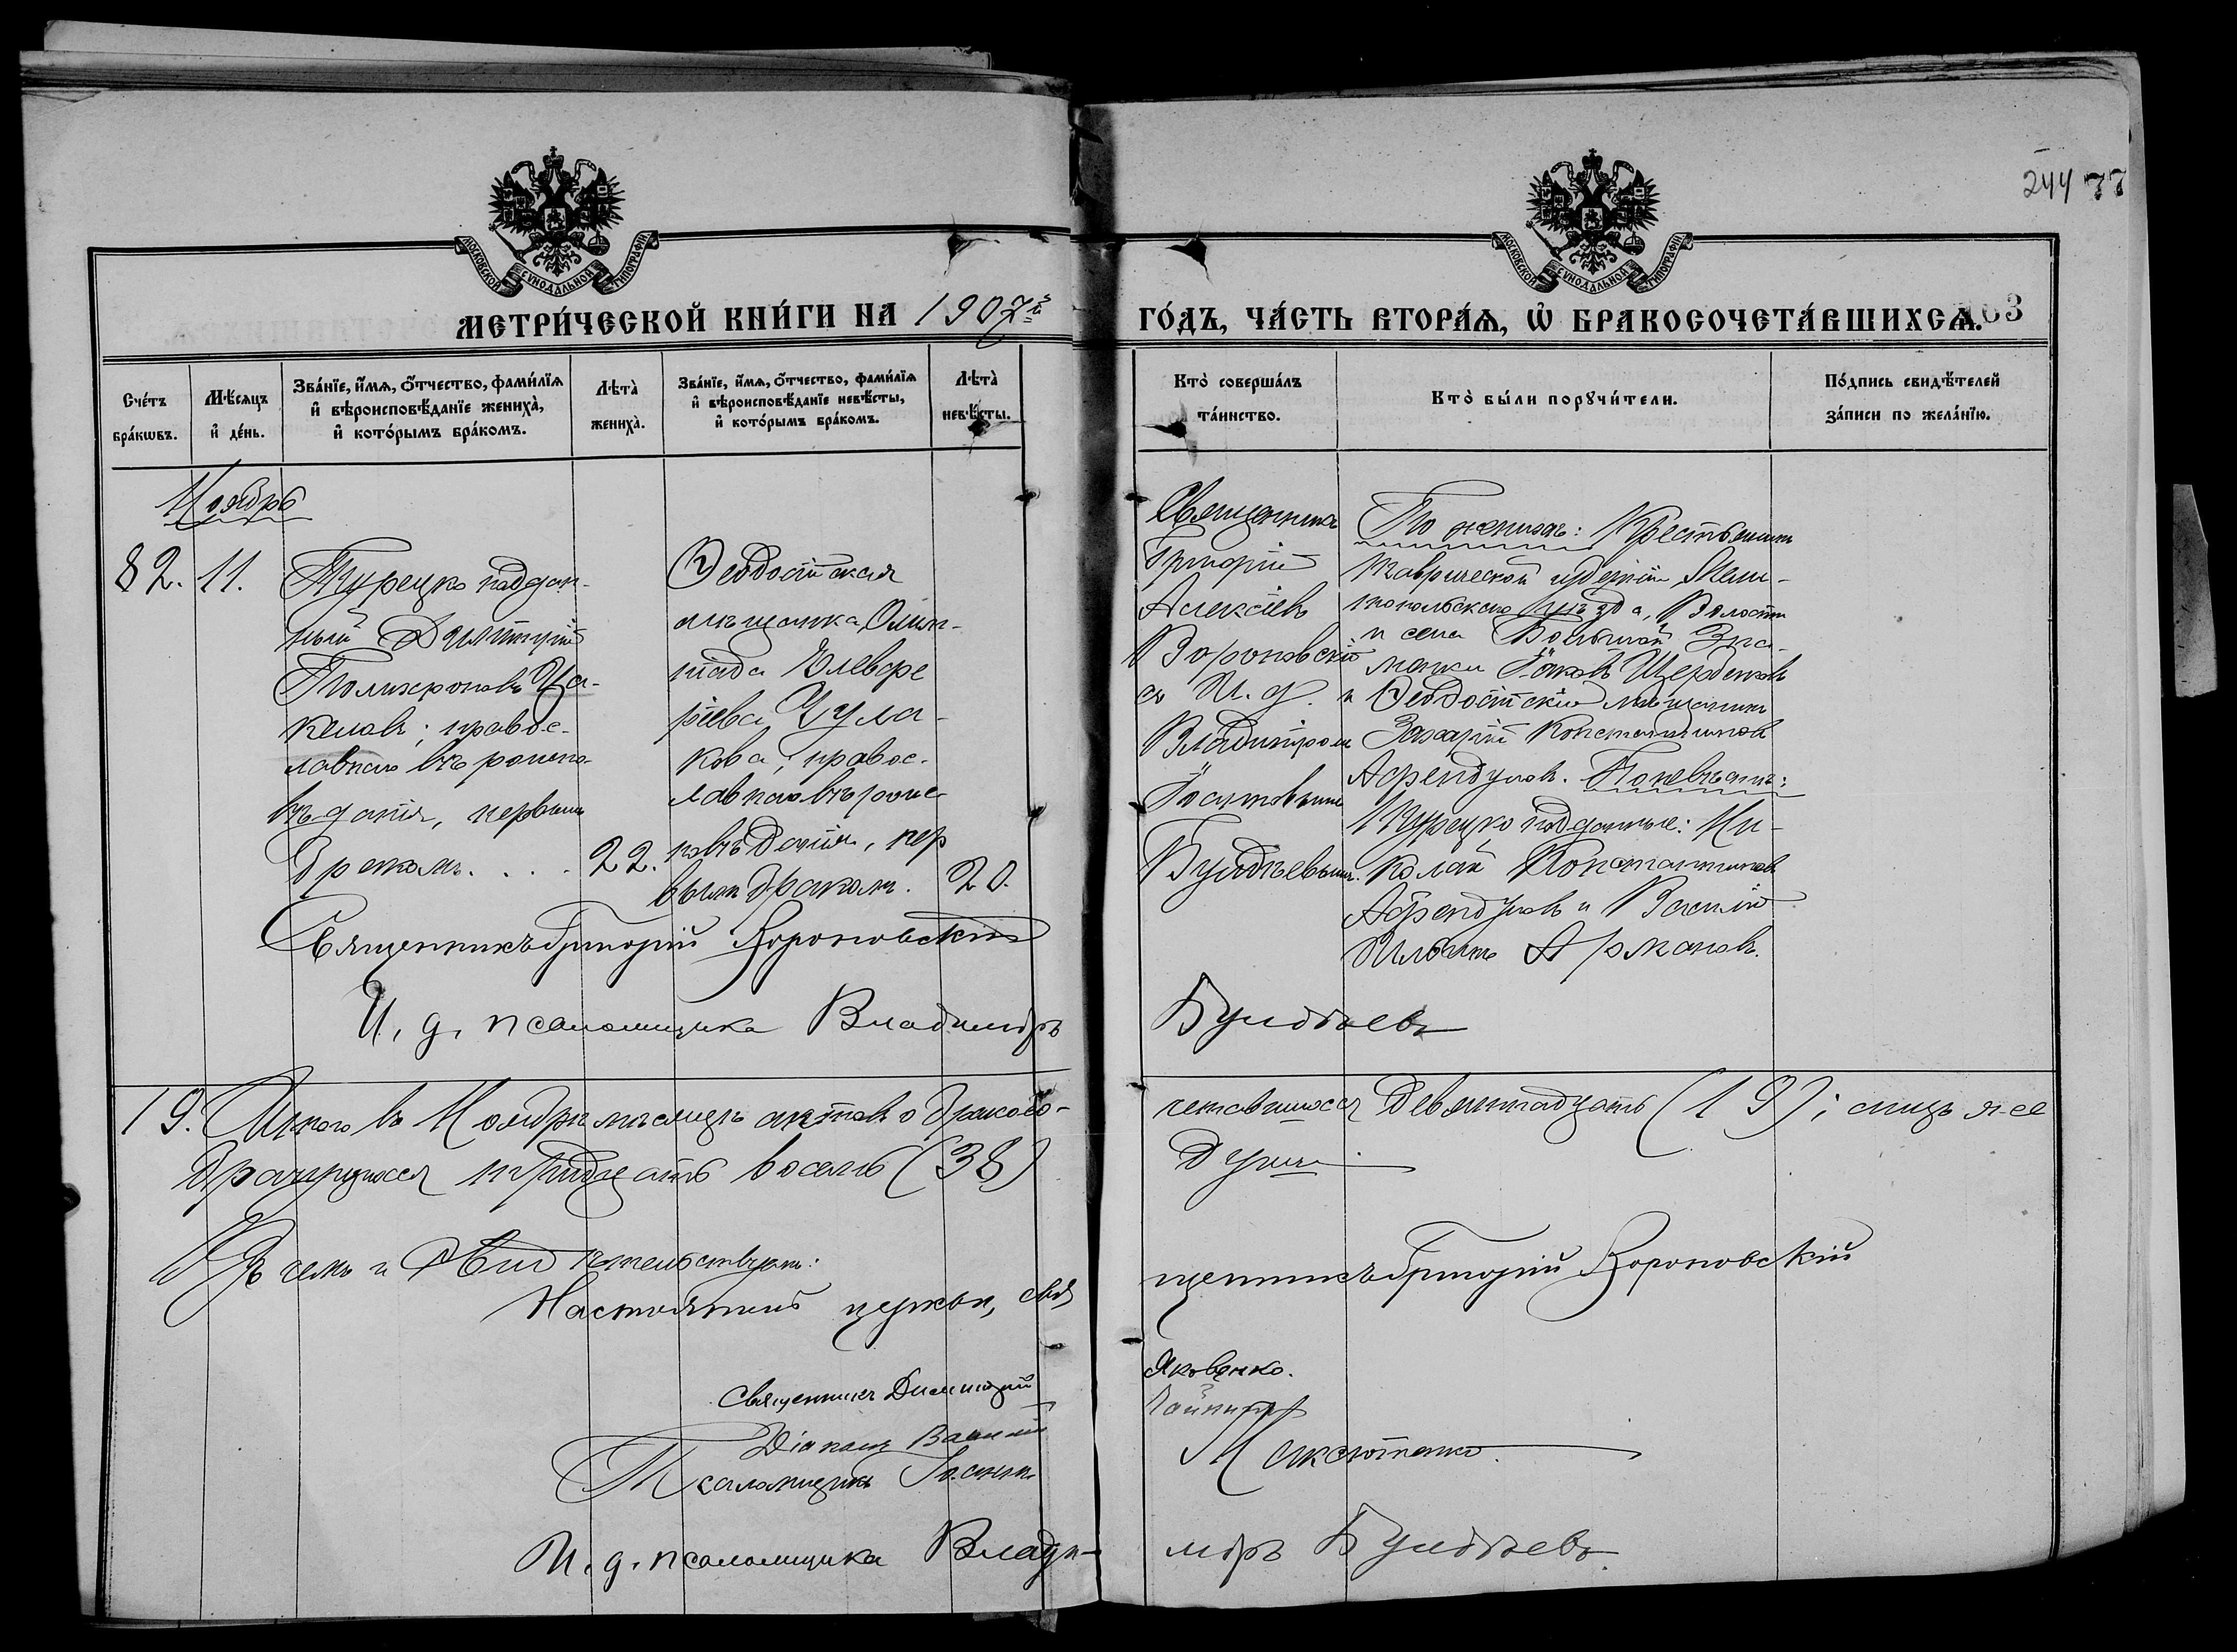 244 77
МОСКОВСКОЙ СѴНОДАЛЬНОЙ ТИПОГРАФІИ
МОСКОВСКОЙ СѴНОДАЛЬНОЙ ТИПОГРАФІИ
МЕТРИ́ЧЕСКОЙ КНИ́ГИ НА 1907й
ГО́ДЪ, ЧА́СТЬ ВТОРА́Ѧ, Ѽ БРАКОСОЧЕТА́ВШИХСѦ.
63
Сче́тъ бра́кѡвъ.
Мѣ́сяцъ и҆ де́нь.
Зва́нїе, и҆́мѧ, ѻ҆́тчество, фами́лїѧ и҆ вѣроисповѣ́данїе жениха̀, и҆ кото́рымъ бра́комъ.
Лѣта̀ жениха̀.
Зва́нїе, и҆́мѧ, ѻ҆́тчество, фами́лїѧ и҆ вѣроисповѣ́данїе невѣ́сты, и҆ кото́рымъ бра́комъ.
Лѣта̀ невѣ́сты.
Кто̀ соверша́лъ та́инство.
Кто̀ бы́ли порꙋчи́тели.
По́дпись свидѣ́телей за́писи по жела́нїю.
Ноябрь
82.
11.
Турецко поддан-
ный Димитрій
Полихроновъ Ча-
келовъ; правос-
лавнаго вѣроиспо-
вѣданія, первымъ
бракомъ. . . .
22.
Ѳеодосійская
мѣщанка Олим-
піада Елевфе
ріева Чула-
кова; правос-
лавнаго вѣроис-
повѣданія, пер
вымъ бракомъ.
20.
Священникъ
Григорій
Алексіевъ
Вороновскій
съ И. д.
Владиміромъ
Булдѣевымъ.
По женихѣ: Крестьянинъ
Таврической губерніи Мели-
топольскаго уѣзда, Волости
и села Большой Зна-
менки Іаковъ Щербаковъ
и Ѳеодосійскій мѣщанинъ
Захарій Константиновъ
Афендуловъ. По невѣстѣ:
Турецко подданные: Ни-
колай Константиновъ
Афендуловъ и Василій
Ильинъ
Священникъ Григорій Вороновскій
И. д. псаломщика Владиміръ
Булдѣевъ
19. Итого въ Ноябрѣ мѣсяцѣ актовъ о бракосо-
четавшихся Девятнадцать (19); лицъ же
брачущихся тридцать восемь (38)
душъ.
Въ чемъ и свидѣтельствуемъ:
Настоятель церкви, свя
щенникъ Григорій Вороновскій
Священникъ Димитрій
Яковенко.
Діаконъ Василій
Псаломщикъ
Максютенко.
И. д. псаломщика Влади-
міръ Булдѣевъ.